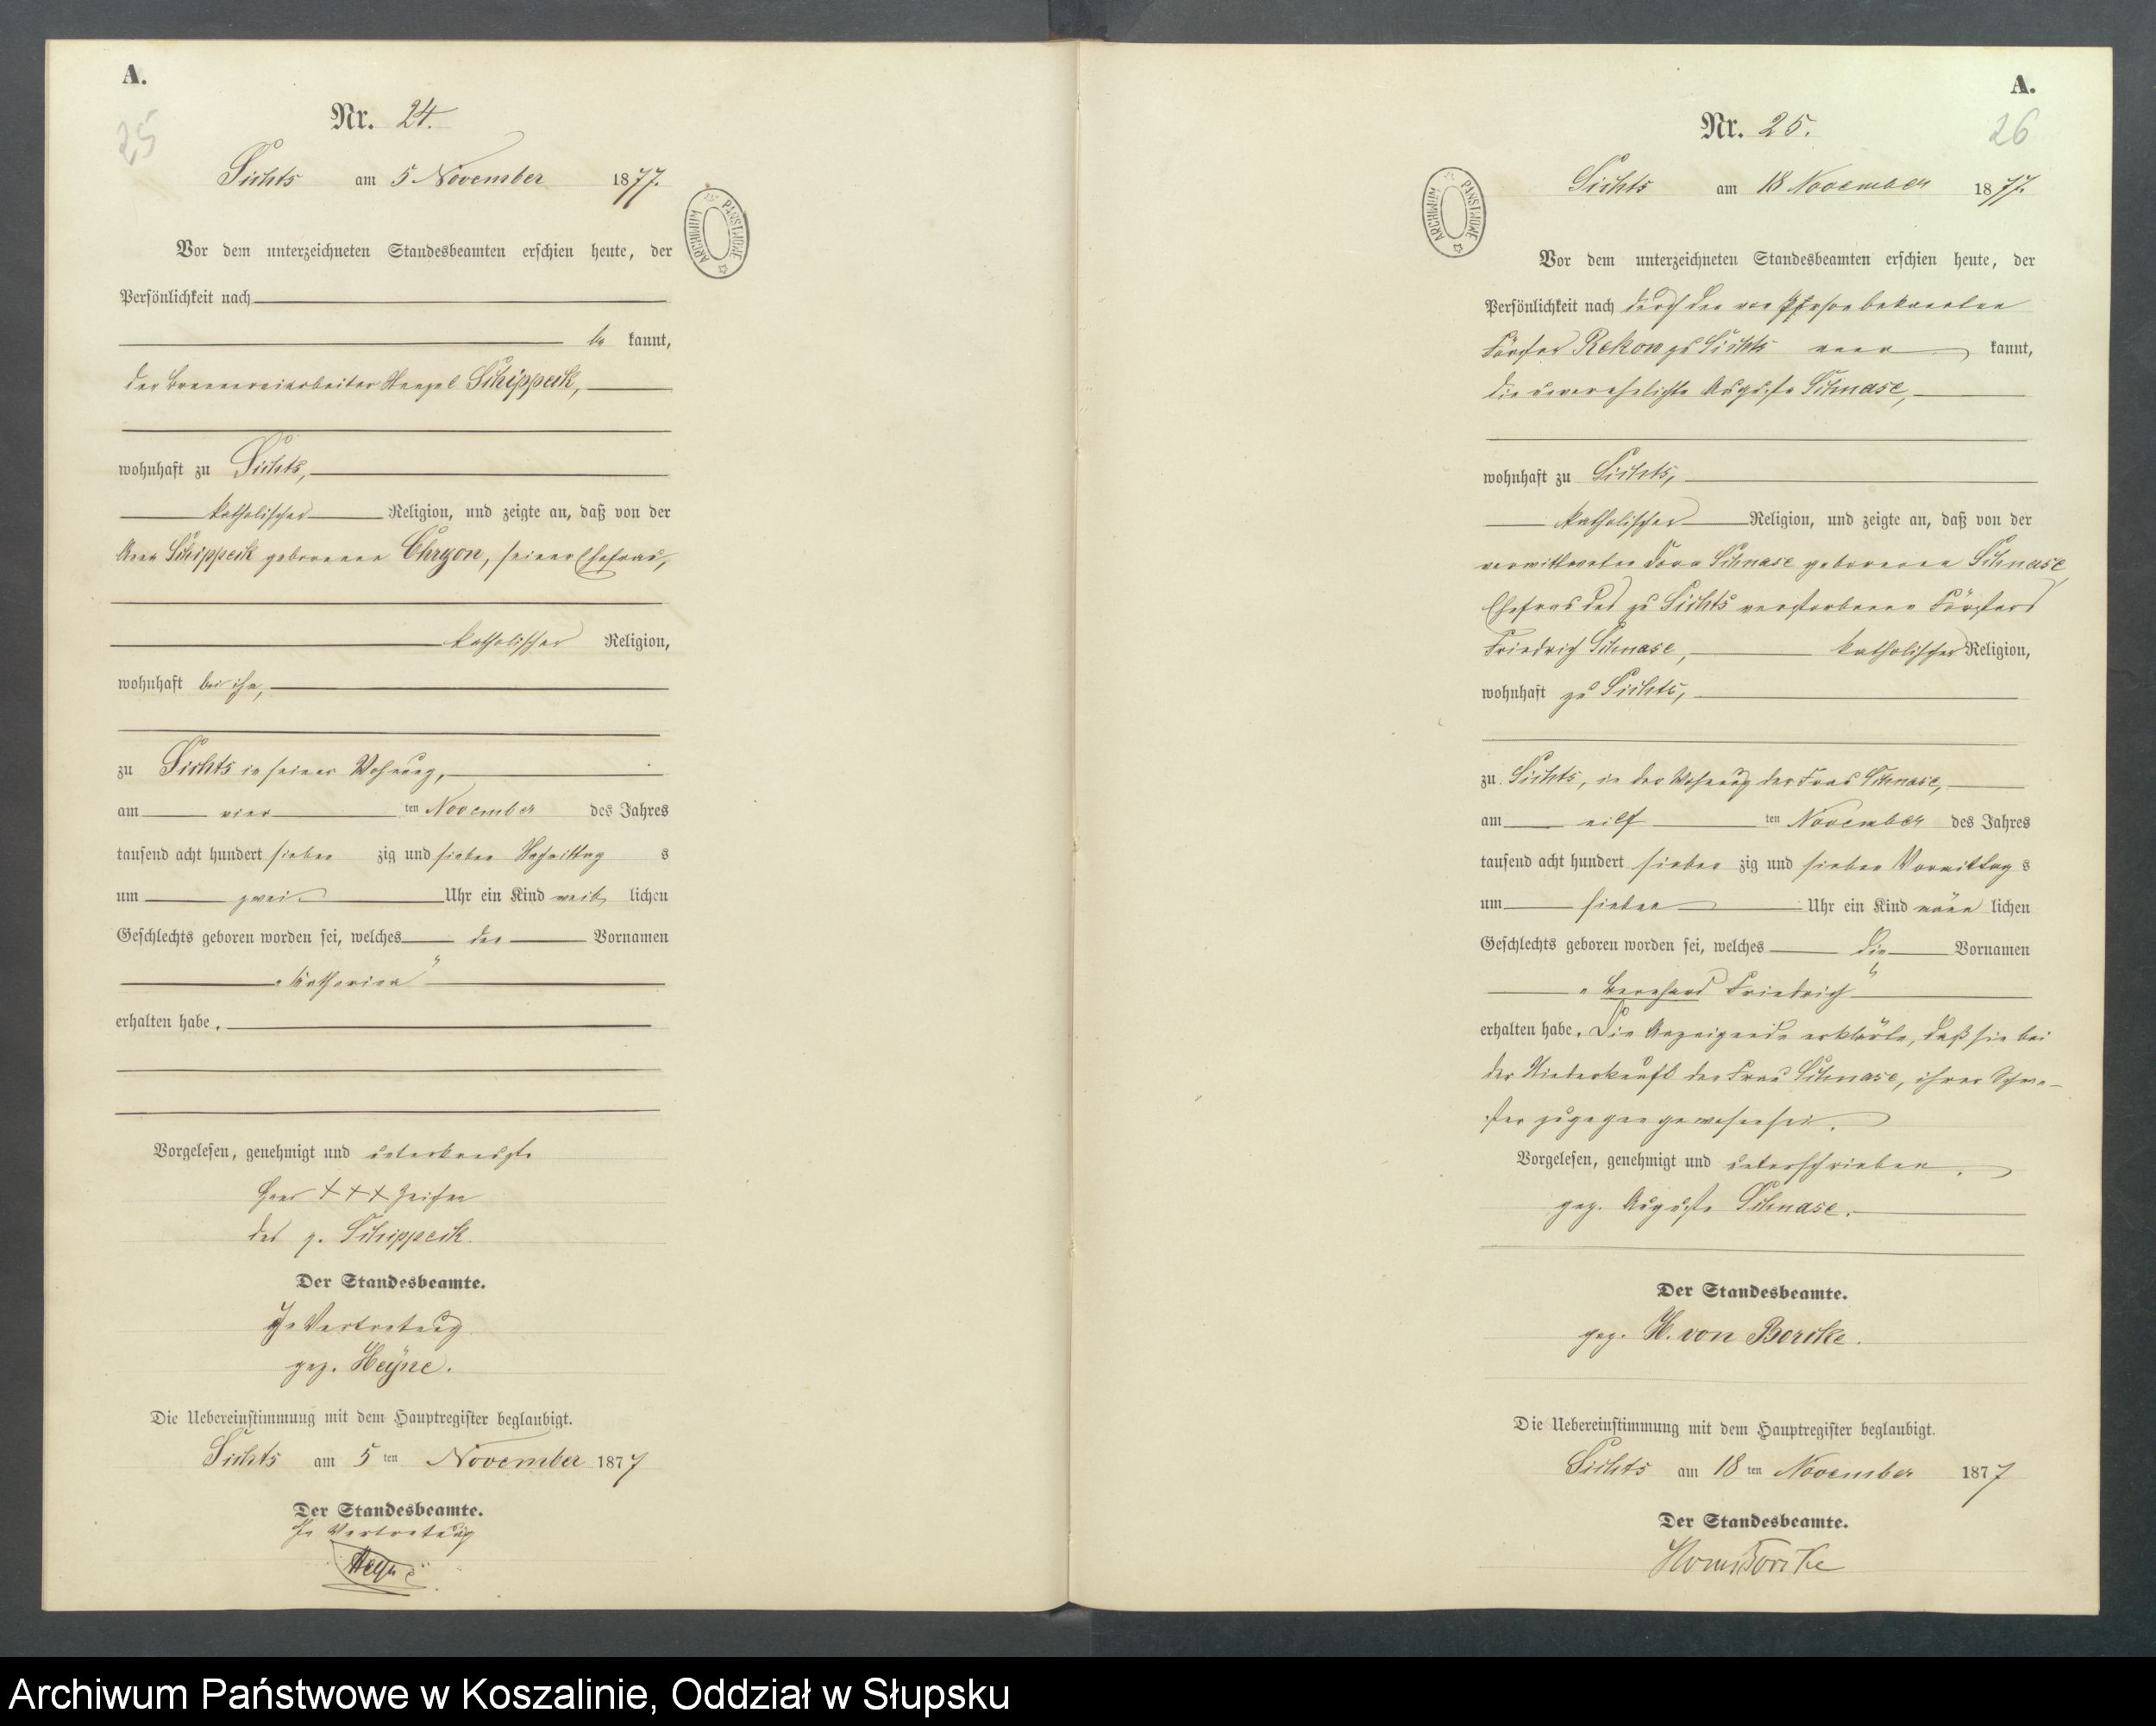 A.
25
Nr. 24.
Sichts am 5 November 1877.
ARCHIWUM PAŃSTWOWE
Vor dem unterzeichneten Standesbeamten erschien heute, der
Persönlichkeit nach
be kannt,
der Brennereiarbeiter Schippeck,
wohnhaft zu Sichts,
katholischer Religion, und zeigte an, daß von der
Anna Schippeck geborenen Chryon, seiner Ehefrau,
katholischer Religion,
wohnhaft bei ihm,
zu Sichts in seiner Wohnung,
am vier ten November des Jahres
tausend acht hundert sieben zig und sieben Nachmittag s
um zwei Uhr ein Kind weib lichen
Geschlechts geboren worden sei, welches den Vornamen
„Katharina“
erhalten habe.
Vorgelesen, genehmigt und unterkreuzt
+++ Zeichen
des p. Schippeck.
Der Standesbeamte.
In Vertretung
gez. Heyne.
Die Uebereinstimmung mit dem Hauptregister beglaubigt.
Sichts am 5 ten November 1877
Der Standesbeamte.
In Vertretung
Heyne
A.
26
Nr. 25.
Sichts am 18 November 1877.
ARCHIWUM PAŃSTWOWE
Vor dem unterzeichneten Standesbeamten erschien heute, der
Persönlichkeit nach durch den von Person bekannten
Förster Rekow zu Sichts aner kannt,
die unverehelichte Auguste Schnase,
wohnhaft zu Sichts,
katholischer Religion, und zeigte an, daß von der
verwittweten Schnase geborenen Schnase
Ehefrau des zu Sichts verstorbenen Försters
Friedrich Schnase, katholischer Religion,
wohnhaft zu Sichts,
zu Sichts, in der Wohnung der Frau Schnase,
am eilf ten November des Jahres
tausend acht hundert sieben zig und sieben Vormittag s
um sieben Uhr ein Kind männ lichen
Geschlechts geboren worden sei, welches die Vornamen
„Bernhard Friedrich“
erhalten habe. Die Anzeigende erklärte, daß sie bei
der Niederkunft der Frau Schnase, ihrer Schwe-
ster zugegen gewesen sei.
Vorgelesen, genehmigt und unterschrieben.
gez. Auguste Schnase.
Der Standesbeamte.
gez. H. von Borcke.
Die Uebereinstimmung mit dem Hauptregister beglaubigt.
Sichts am 18 ten November 1877
Der Standesbeamte.
H von Borcke
Archiwum Państwowe w Koszalinie, Oddział w Słupsku